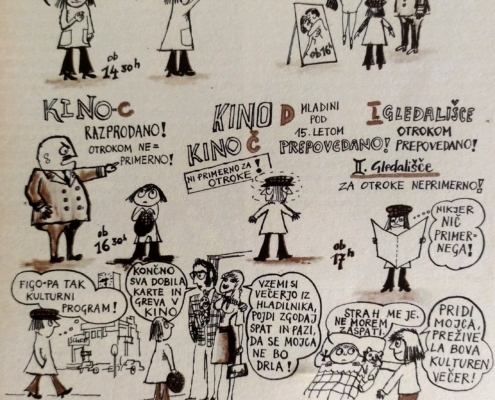 ob
14 30 h
ob 16 h
KINO-C
RAZPRODANO!
OTROKOM NE=
PRIMERNO!
8
ob
16 30 h
KINO D
MLADINI
POD
15. LETOM
KINO Č
PREPOVEDANO!
NI PRIMERNO ZA
OTROKE!
I GLEDALIŠČE
OTROKOM
PREPOVEDANO!
II. Gledališče
ZA OTROKE NEPRIMERNO!
ob
17 h
NIKJER
NIČ
PRIMER-
NEGA!
FIGO-PA TAK
KULTURNI
PROGRAM!
KONČNO
SVA DOBILA
KARTE IN
GREVA V
KINO
VZEMI SI
VEČERJO IZ
HLADILNIKA,
POJDI ZGODAJ
SPAT IN PAZI,
DA SE MOJCA
NE BO
DRLA!
STRAH ME JE.
NE MOREM
ZASPATI.
PRIDI
MOJCA,
PREŽIVE-
LA BOVA
KULTUREN
VEČER!